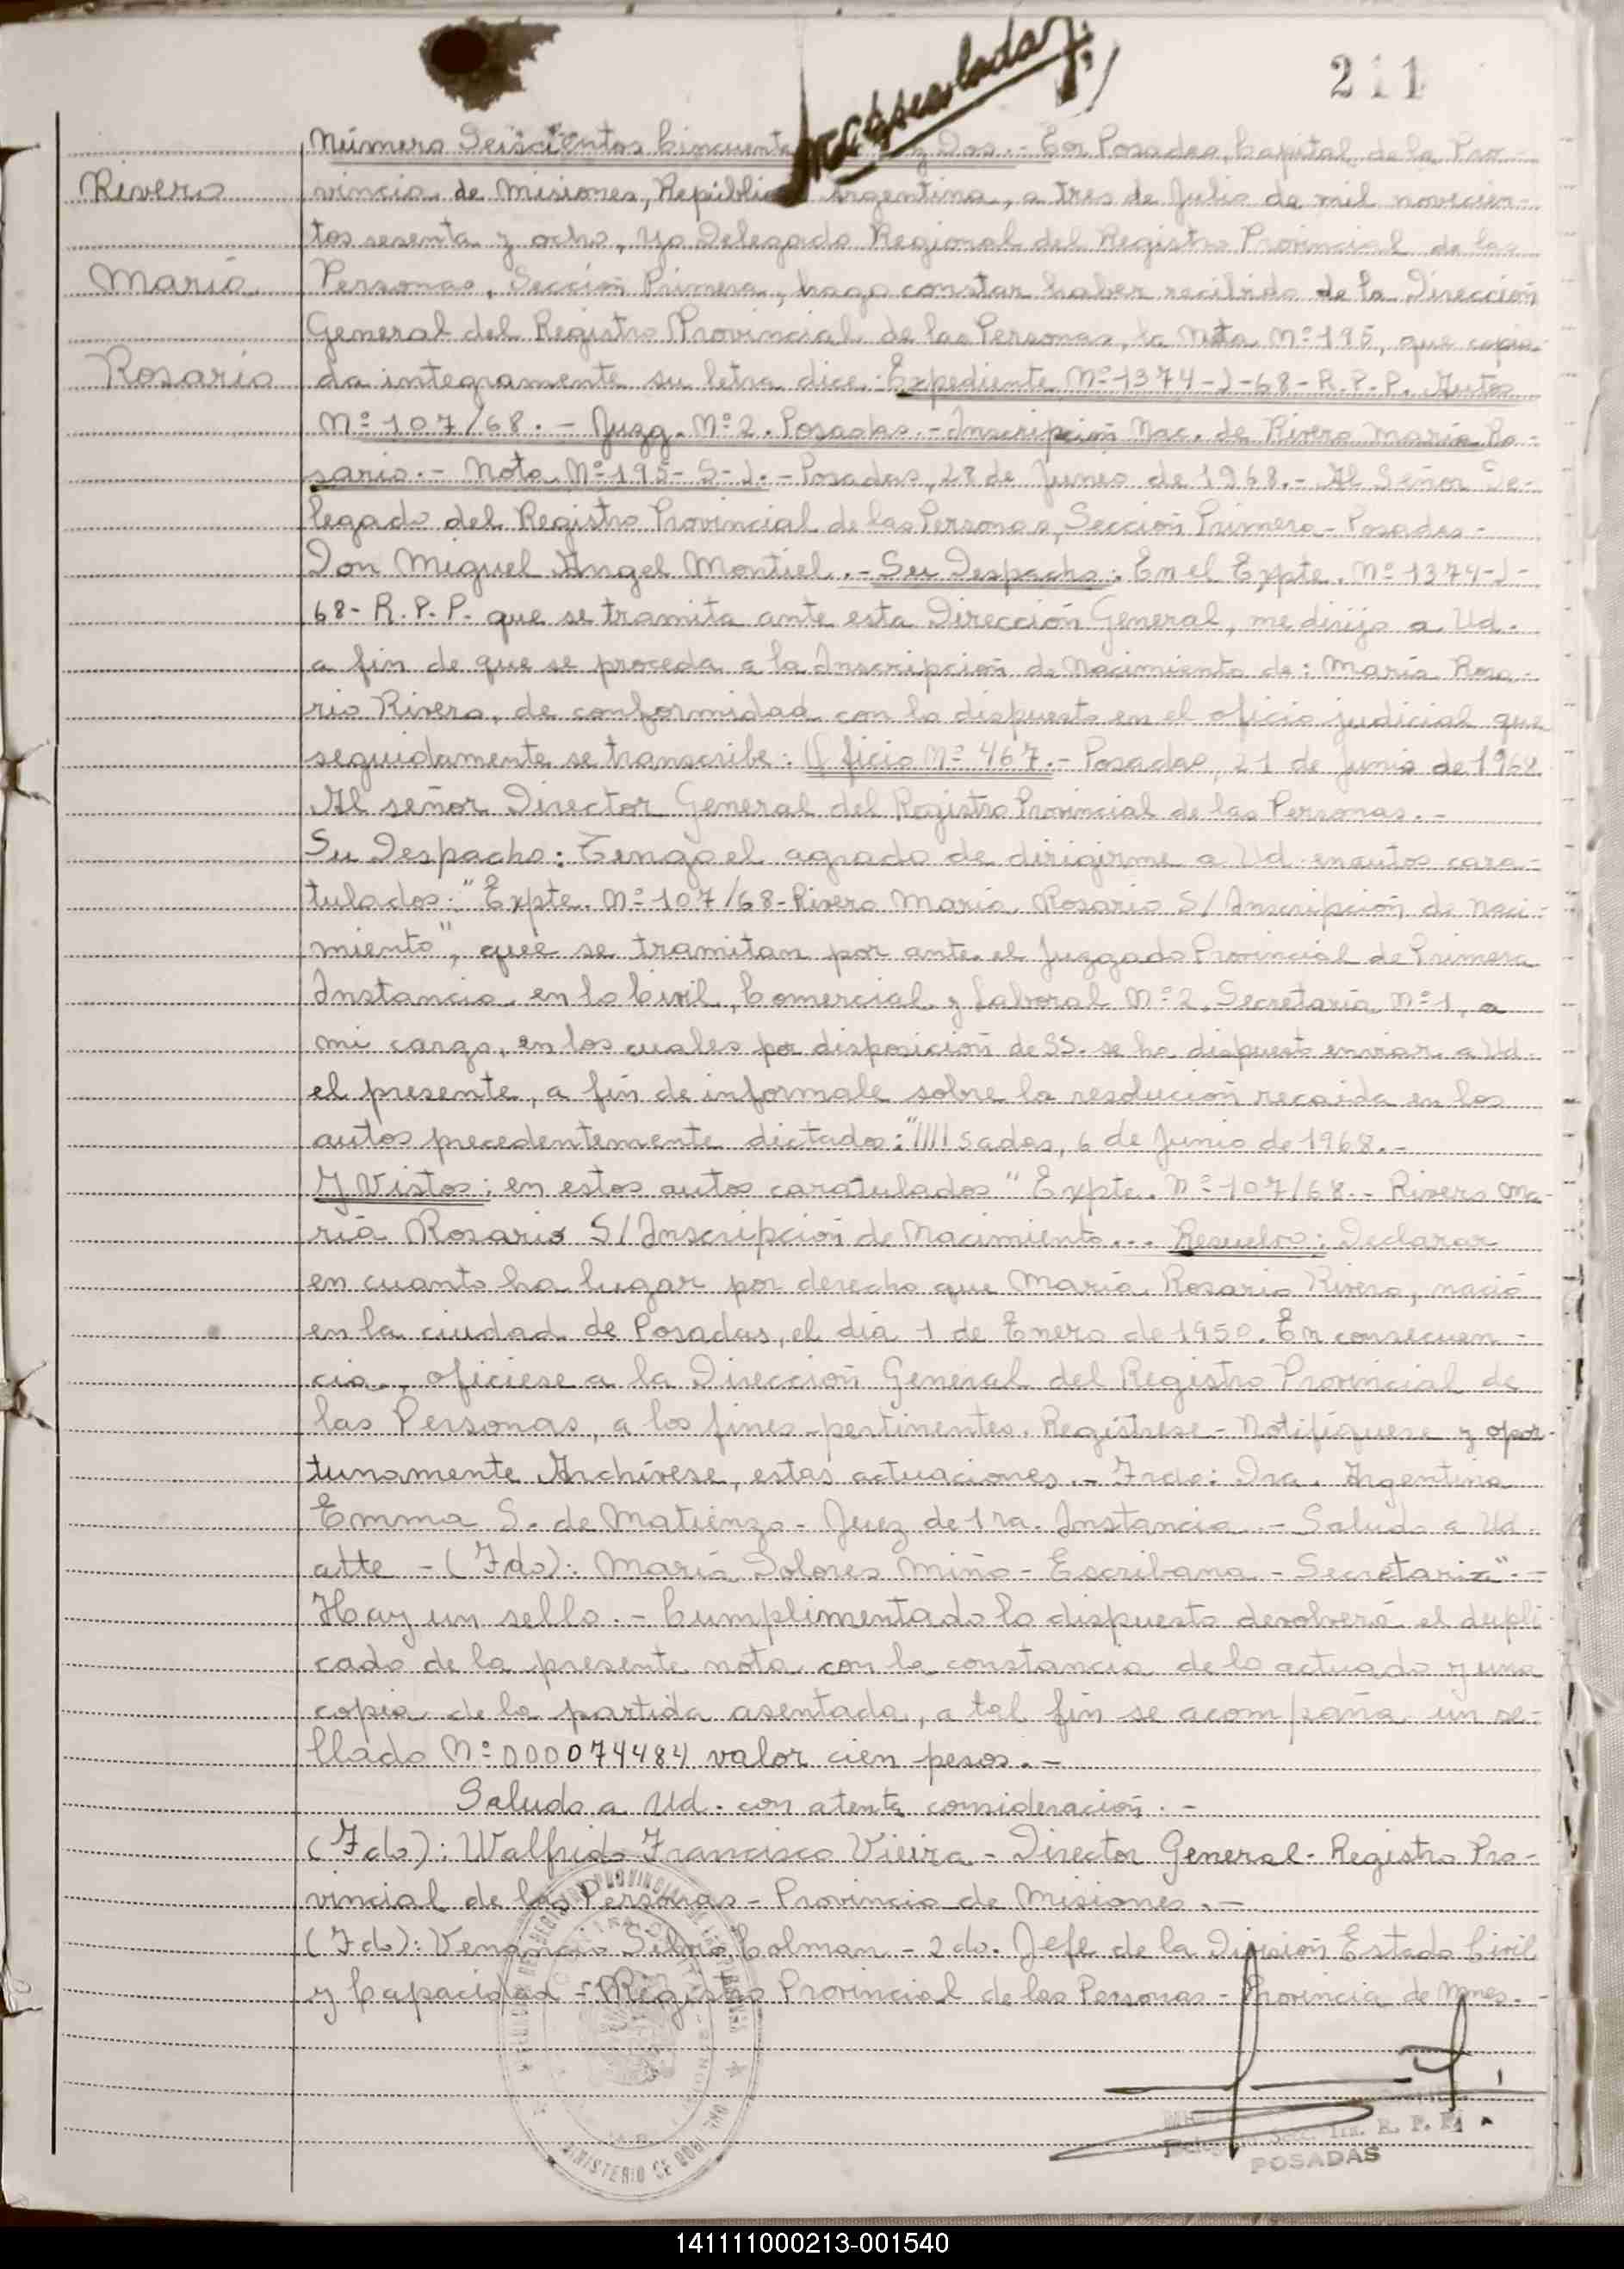 211
Número Seiscientos Cincuenta y Dos.- En Posadas, Capital de la Pro-
Rivero
vincia de Misiones, República Argentina, a tres de Julio de mil novecien-
tos sesenta y ocho, yo Delegado Regional del Registro Provincial de las
María
Personas, Sección Primera, hago constar haber recibido de la Dirección
General del Registro Provincial de las Personas, la Nota Nº 195, que copia-
Rosario
da integramente su letra dice: Expediente Nº 1374-J-68-R.P.P. Autos
Nº 107/68.- Juzg. Nº 2. Posadas.- Inscripción Nac. de Rivero María Ro-
sario.- Nota Nº 195-S-J.- Posadas, 28 de Junio de 1968.- Al Señor De-
legado del Registro Provincial de las Personas, Sección Primera - Posadas -
Don Miguel Angel Montiel.- Su Despacho: En el Expte. Nº 1374-J-
68-R.P.P. que se tramita ante esta Dirección General, me dirijo a Ud.
a fin de que se proceda a la Inscripción de Nacimiento de: María Rosa-
rio Rivero, de conformidad con lo dispuesto en el oficio judicial que
seguidamente se transcribe: Oficio Nº 467.- Posadas, 21 de Junio de 1968
Al señor Director General del Registro Provincial de las Personas.-
Su Despacho: Tengo el agrado de dirigirme a Ud. en autos cara-
tulados: "Expte. Nº 107/68-Rivero María Rosario S/Inscripción de Naci-
miento", que se tramitan por ante el Juzgado Provincial de Primera
Instancia en lo Civil, Comercial y Laboral Nº 2, Secretaría Nº 1, a
mi cargo, en los cuales por disposición de SS. se ha dispuesto enviar a Ud.
el presente, a fin de informale sobre la resolución recaida en los
autos precedentemente dictados: "////sadas, 6 de Junio de 1968.-
Y Vistos: en estos autos caratulados "Expte. Nº 107/68.- Rivero Ma-
ría Rosario S/Inscripción de Nacimiento... Resuelvo: Declarar
en cuanto ha lugar por derecho que María Rosario Rivero, nació
en la ciudad de Posadas, el día 1 de Enero de 1950. En consecuen-
cia, oficiese a la Dirección General del Registro Provincial de
las Personas, a los fines pertinentes. Regístrese - Notifíquese y opor-
tunamente Archívese, estas actuaciones.- Frdo: Dra. Argentina
Emma S. de Matienzo - Juez de 1ra. Instancia - Saludo a Ud.
atte - (Fdo): María Dolores Miño - Escribana - Secretaria".-
Hay un sello.- Cumplimentado lo dispuesto devolverá el dupli
cado de la presente nota con la constancia de lo actuado y una
copia de la partida asentada, a tal fin se acompaña un se-
llado Nº 000074484 valor cien pesos.-
Saludo a Ud. con atenta consideración.-
(Fdo): Walfrido Francisco Vieira - Director General - Registro Pro-
vincial de las Personas - Provincia de Misiones.-
(Fdo): Venancio Silvio Colman - 2do. Jefe de la División Estado Civil
y Capacidad - Registro Provincial de las Personas - Provincia de Mnes.-
MINISTERIO DE GOB
R. P. P.
POSADAS
141111000213-001540